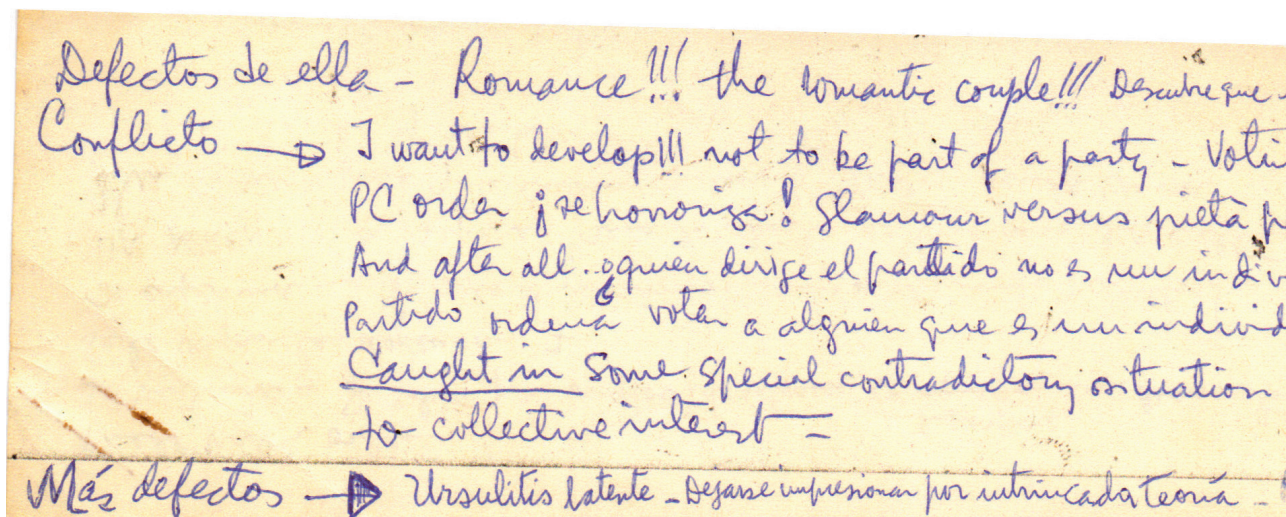 Defectos de ella - Romance!!! the romantic couple!!! Descubre que -
Conflicto → I want to develop!!! not to be part of a party - Voti
PC order ¡se horroriza! Glamour versus pietà p
And after all. ¿quién dirige el partido no es un indiv
Partido ordena votar a alguien que es un individ
Caught in some special contradictory situation
to collective interest -
Más defectos → Ursulitis latente - Dejarse impresionar por intrincada teoría -